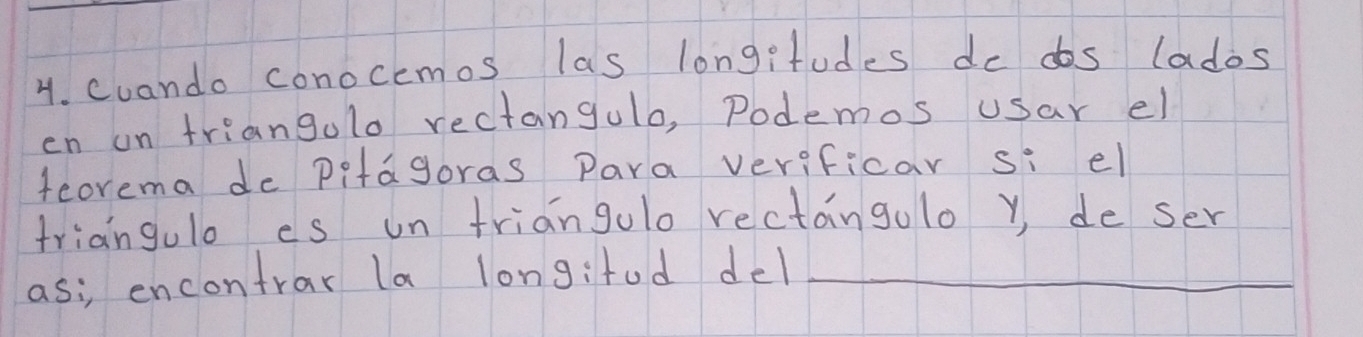 4. Cuando conocemos las longitudes de dos lados
en un triangulo rectangulo, Podemos usar el
teorema de Pitágoras Para verificar si el
triángulo es un triángulo rectángulo y, de ser
asi, encontrar la longitud del